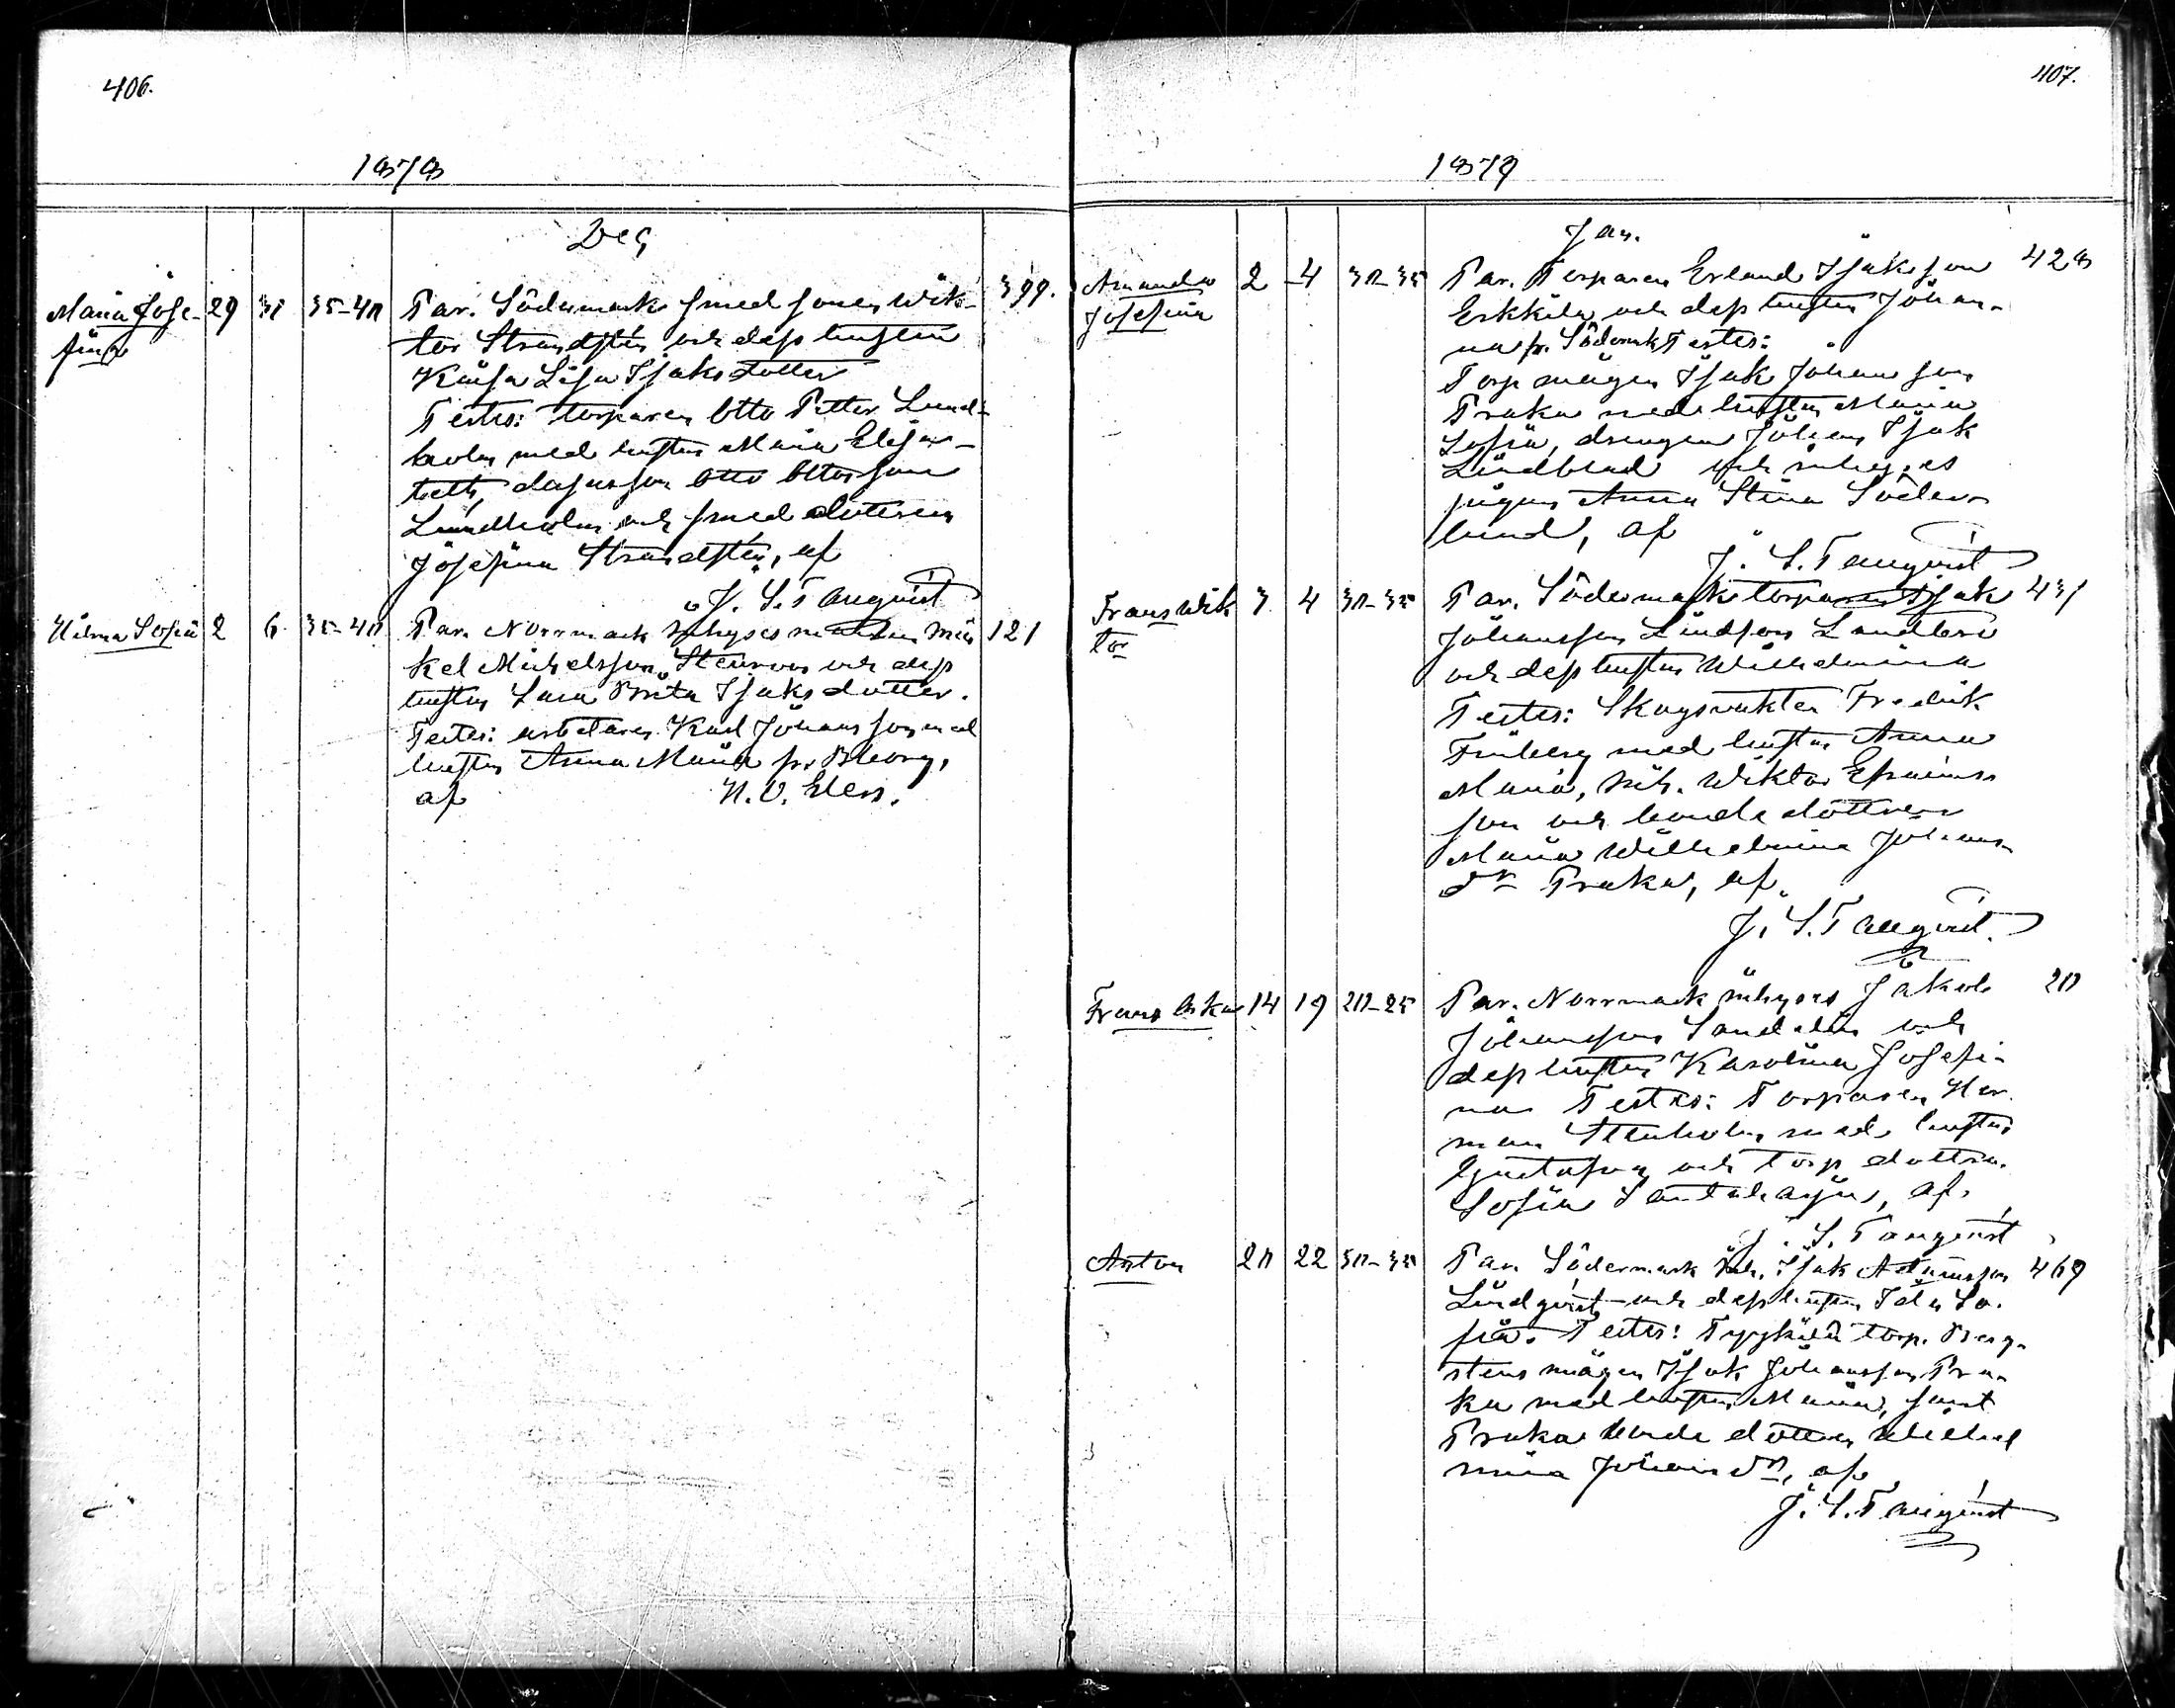 406.
1878
Dec
Maria Jose-
fina
29 31 35-40
Par. Södermark smed sonen Wik-
tor Strandsten och dess hustru
Kajsa Lisa Isaksdotter
Testes: torparen Otto Petter Lund-
holm med hustru Maria Elisa-
beth, Otto Ottosson
Lundholm och smed dottren
Josefina Strandsten, af
J. S. Tanqvist
399.
Hilma Sofia 2 6 35-40
Par. Norrmark inhyses Mi-
kel Michelsson Stenroos och dess
hustru Sara Brita Isaksdotter.
Testes: arbetaren Karl Johansson med
hustru Anna Maria fr. Bborg,
af
121
407.
1879
Jan.
Amanda
Josefina
2 4 30-35
Par. Torparen Erland Isaksson
Erkkilä och dess hustru Johan-
na fr. Södermark Testes:
Torp mågen Isak Johansson
Traka med hustru Maria
Sofia, drängen Johan Isak
Lindblad och inhyses
pigan Anna Stina Söder-
lund, af
J. S. Tanqvist
428
Frans Wik
tor
3 4 30-35
Par. Södermark torparen Isak
Johansson Lindfors
och dess hustru Wilhelmina
Testes: Skogsvakten Fredrik
Friberg med hustru Anna
Maria, inh. Wiktor Efraims
son och bonde dottren
Maria Wilhelmina Johans
dr Traka, af
J. S. Tanqvist
431
Frans Oskar 14 19 20-25
Par. Norrmark inhyses Jakob
Johansson Sandelin och
dess hustru Karolina Josefi-
na Testes: Torparen Her-
man Stenholm med hustru
Gustafva och torp dottren
Sofia, af
J. S. Tanqvist
20
Anton 20 22 30-35
Par. Södermark inh. Isak Adamsson
Lindqvist och dess hustru Ida So-
fia. Testes: torp. Berg-
stens mågen Isak Johansson Tra-
ka med hustru Maria, samt
Traka bonde dottren Wilhel
mina Johansdr, af
J. S. Tanqvist
469